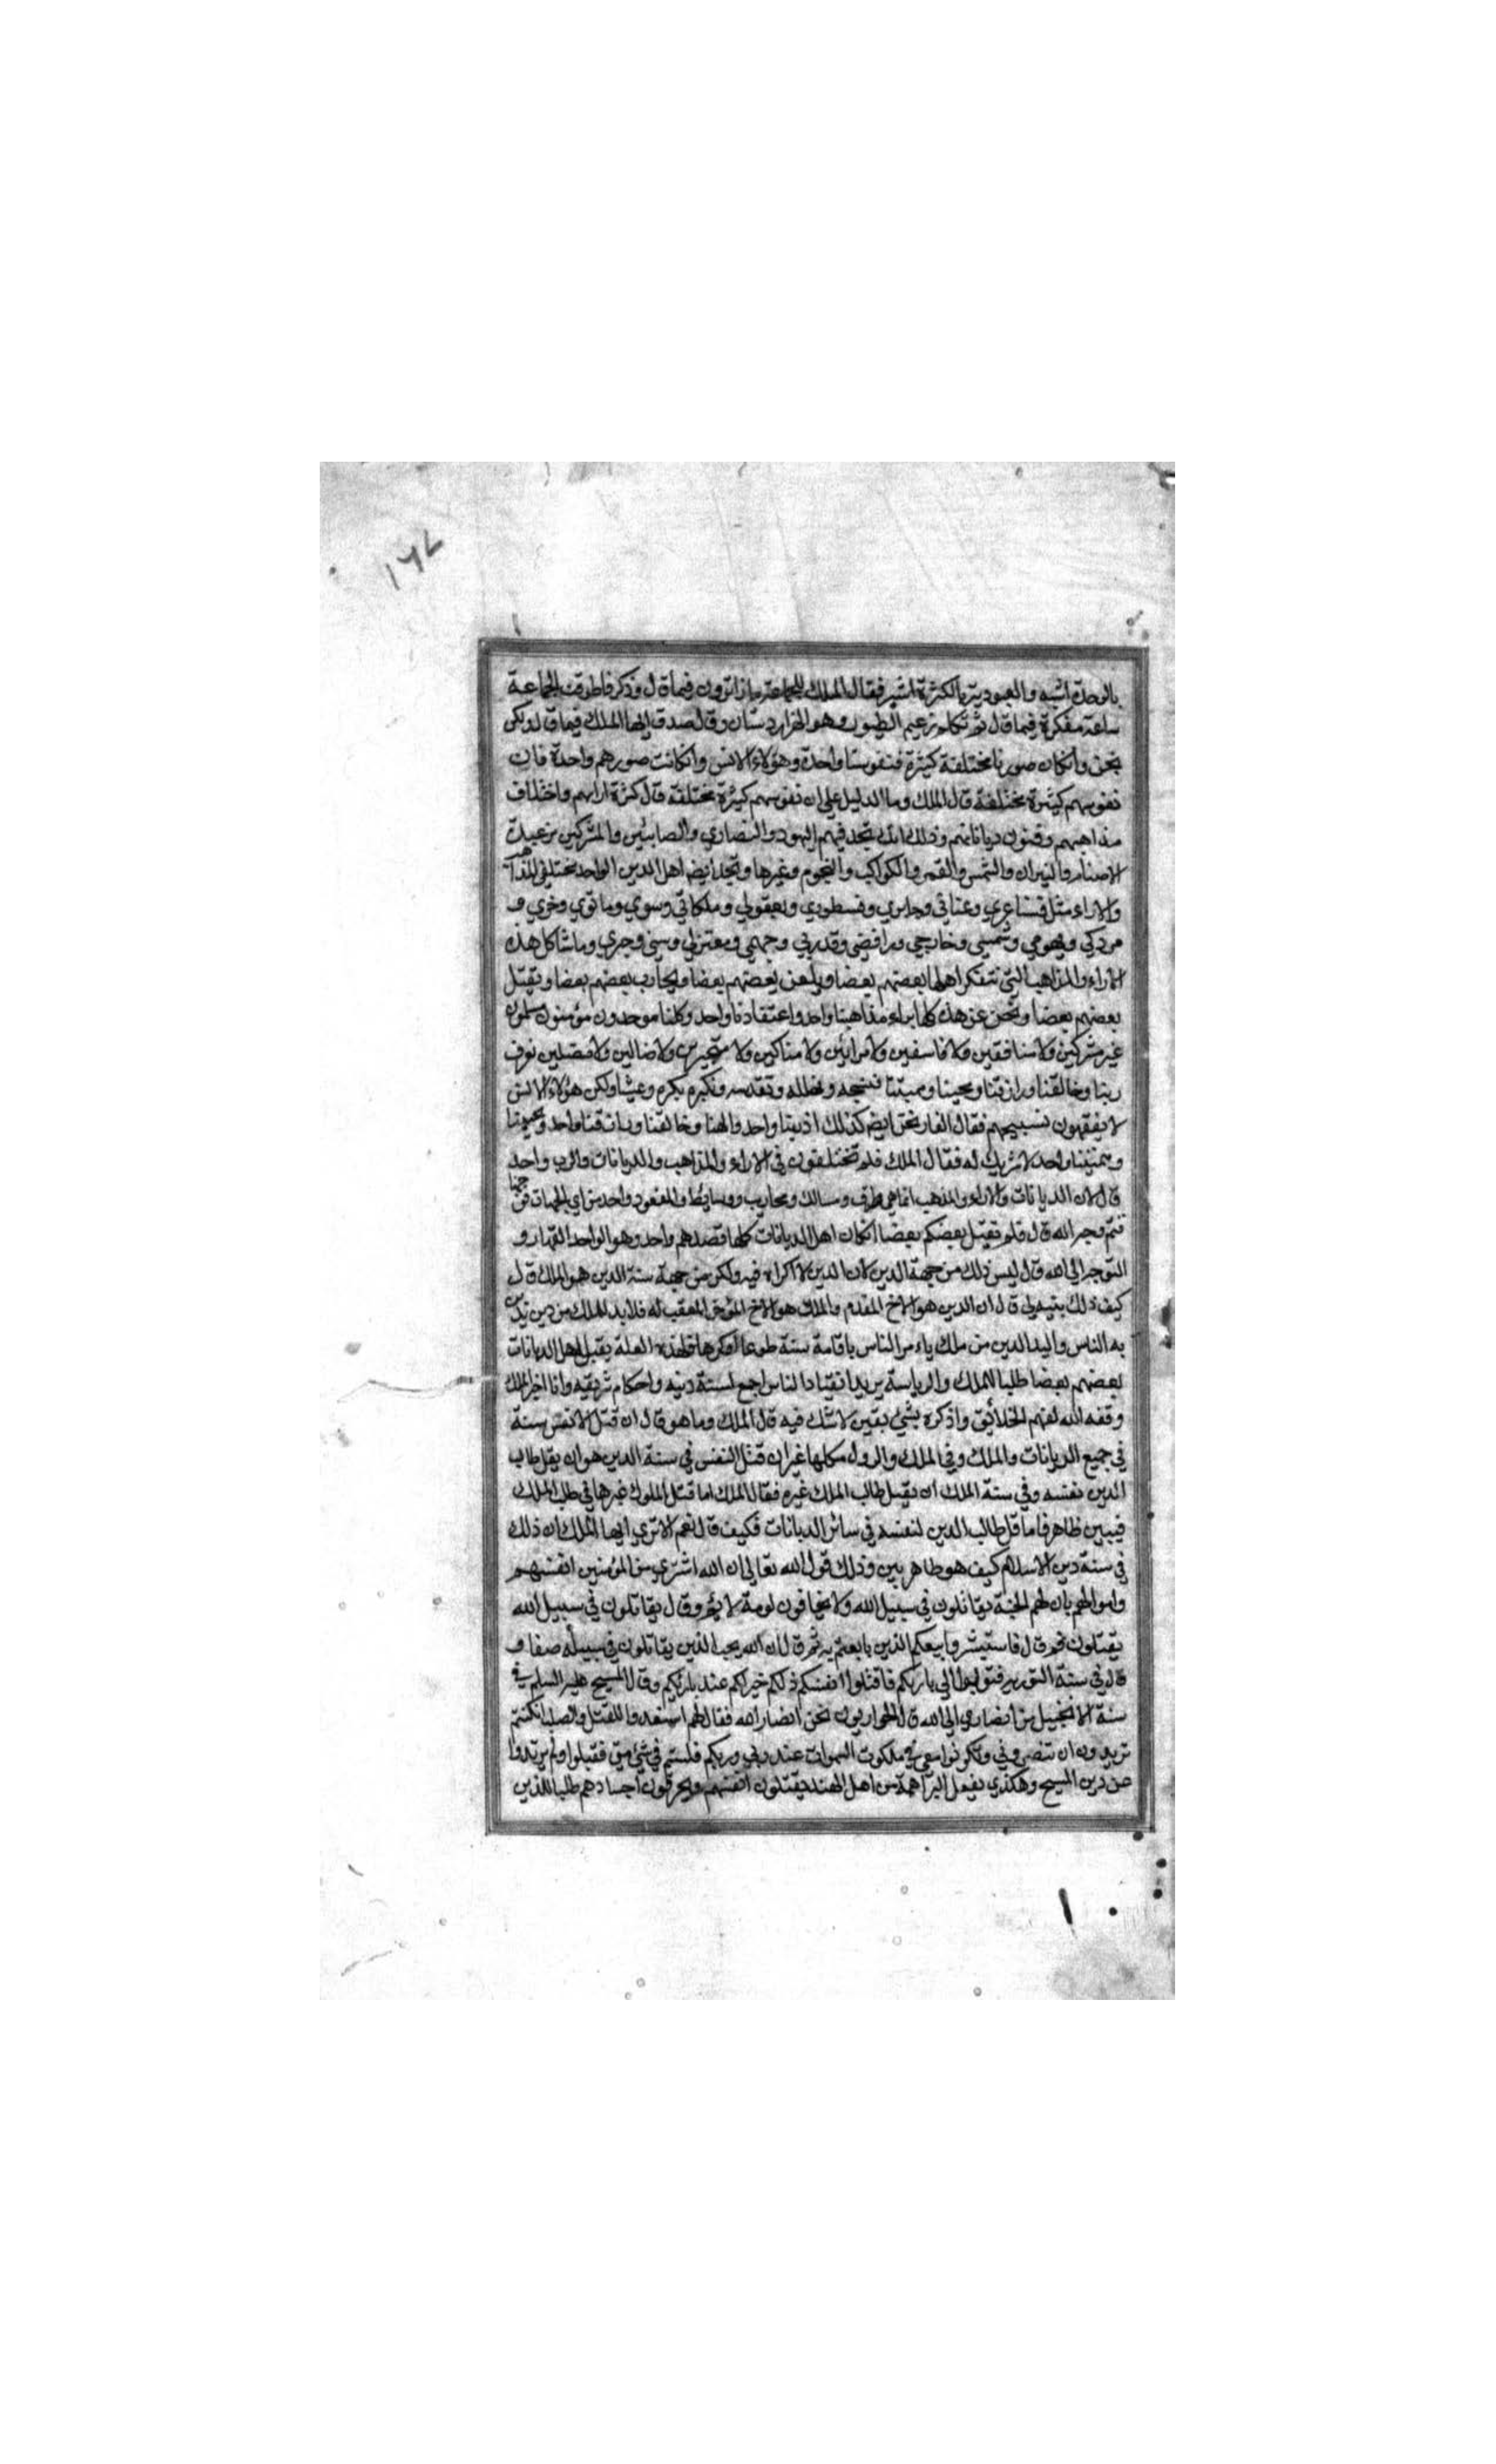 ١٦٧
بالوحدة اشبه والعبودية بالكثرة اشبه فقال الملك للجماعة ماذا ترون فيما قال وذكر فاطرقت الجماعة
ساعة مفكرة فيما قال ثم تكلم زعيم الطيور وهو الهزاردستان وقال صدق ايها الملك فيما قال ولكن
نحن وان كان صورنا مختلفة كثيرة فنفوسنا واحدة وهؤلاء الانس وان كانت صورهم واحدة فان
نفوسهم كثيرة مختلفة قال الملك وما الدليل على ان نفوسهم كثيرة مختلفة قال كثرة ارايهم واختلاف
مذاهبهم وفنون دياناتهم وذلك انك تجد فيهم اليهود والنصاري والصابئين والمشركين من عبدة
الاصنام والنيران والشمس والقمر والكواكب والنجوم وغيرها وتجد ايضا اهل الدين الواحد مختلفي المذاهب
والاراء مثل وعناني ونسطوري ويعقوبي وملكاني وما نوي و
مزدكي وشمسي وخارجي ورافضي وقدري وجهمي ومعتزلي وسني وجبري وما شاكل هذه
الاراء والمذاهب التي اهلها بعضهم بعضا ويلعن بعضهم بعضا ويحارب بعضهم بعضا ويقتل
بعضهم بعضا ونحن عن هذه كلها براء مذاهبنا واحد واعتقادنا واحد وكلنا موحدون مؤمنون مسلمون
غير مشركين ولا منافقين ولا فاسقين ولا مرايين ولا ولا متحيرين ولا ضالين ولا مضلين نعرف
ربنا وخالقنا ورازقنا ومحيينا ومميتنا نسبحه ونهلله ونقدسه ونكبره بكرة وعشيا ولكن هؤلاء الانس
لا يفقهون تسبيحهم فقال نحن ايضا كذلك اذ ربنا واحد والهنا وخالقنا ورازقنا واحد ومحيينا
ومميتنا واحد لا شريك له فقال الملك فلم تختلفون في الاراء والمذاهب والديانات والرب واحد
قال لان الديانات والاراء والمذهب انما هي طرق ومسالك ومحاريب ووسايط والمقصود واحد من اي الجهات توجهنا
فثم وجه الله قال فلم يقتل بعضكم بعضا ان كان اهل الديانات كلها قصدهم واحد وهو الواحد القهار و
التوجه الى الله قال ليس ذلك من جهة الدين لان الدين لا اكراه فيه ولكن من جهة سنة الدين هو الملك قال
كيف ذلك بينه لي قال ان الدين هو الاخ المقدم والملك هو الاخ المؤخر المعقب له فلا بد للملك من دين يدين
به الناس ولا بد للدين من ملك يامر الناس باقامة سنة طوعا او كرها فلهذه العلة يقتل اهل الديانات
بعضهم بعضا طلبا للملك والرياسة يريد انقياد الناس اجمع لسنة دينه واحكام شريعته وانا اخبر الملك
وفقه الله لفهم الخلائق واذكره بشيء يقين لا شك فيه قال الملك وما هو قال ان قتل الانفس سنة
في جميع الديانات والملك وفي الملك والدول كلها غير ان قتل النفس في سنة الدين هو ان يقتل طالب
الدين نفسه وفي سنة الملك ان يقتل طالب الملك غيره فقال الملك اما قتل الملوك غيرها في طلب الملك
فبين ظاهر فاما قتل طالب الدين لنفسه في سائر الديانات فكيف قال نعم الا ترى ايها الملك ان ذلك
في سنة دين الاسلام كيف هو ظاهر بين وذلك قول الله تعالى ان الله اشترى من المؤمنين انفسهم
واموالهم بان لهم الجنة يقاتلون في سبيل الله ولا يخافون لومة لائم وقال يقاتلون في سبيل الله
يقتلون ثم قال فاستبشروا ببيعكم الذين بايعتم به ثم قال ان الله يحب الذين يقاتلون في سبيله صفا و
قال في سنة التورية فتوبوا الى باريكم فاقتلوا انفسكم ذلكم خير لكم عند باريكم وقال المسيح عليه السلم في
سنة الانجيل من انصاري الى الله قال الحواريون نحن انصار الله فقال لهم استعدوا للقتل والصلب ان كنتم
تريدون ان تنصروني وتكونوا معي في ملكوت السموات عند ربي وربكم فلستم في شيء مني فقتلوا ولم يرتدوا
عن دين المسيح وهكذي يفعل البراهمة من اهل الهند يقتلون انفسهم ويحرقون اجسادهم طلبا للدين